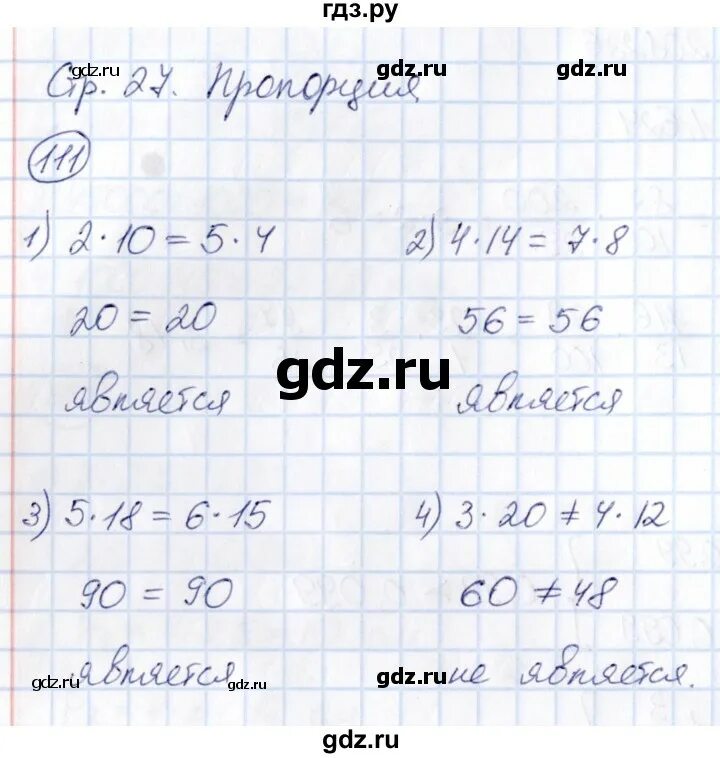 гдз.ру
Стр. 27. Пропорция
gdz.ru gdz.ru gdz.ru
111
1) 2·10 = 5·4 2) 4·14 = 7·8
20 = 20 56 = 56
gdz.ru
является является
3) 5·18 = 6·15 4) 3·20 ≠ 4·12
90 = 90 60 ≠ 48
является не является.
gdz.ru gdz.ru gdz.ru
gdz.ru